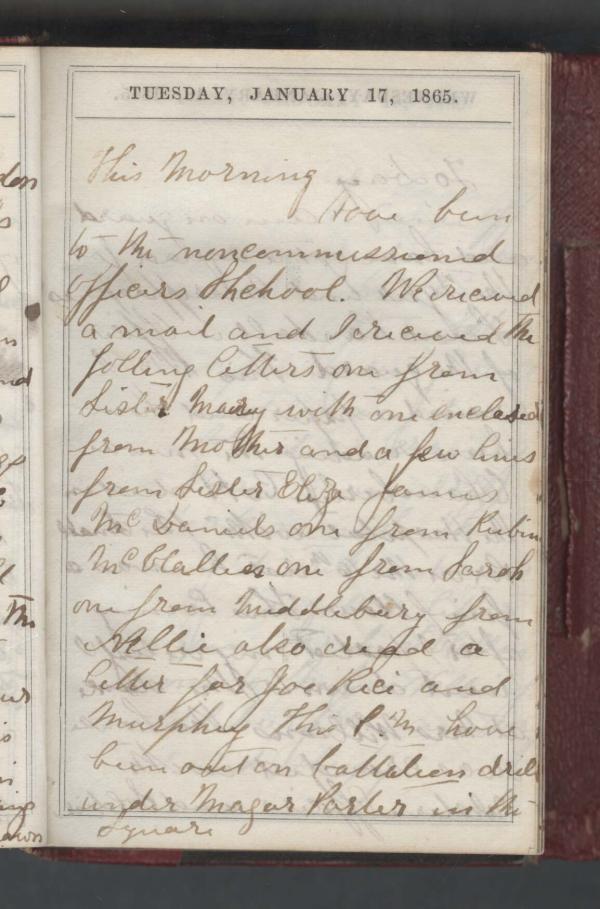 TUESDAY, JANUARY 17, 1865.
This Morning
Have been
to the noncommissioned
officers Shehool. We recieved
a mail and I recieved the
folling letters one from
Sister Mary with one enclosed
from Mother and a few lines
from Sister Eliza James
Mc Daniels one from Rubin
Mc one from Sarah
one from Middlebury from
Nellie also a
letter for Joe Rice and
Murphey This P.M have
been out on battalion drill
under Magor Porter in the
Square